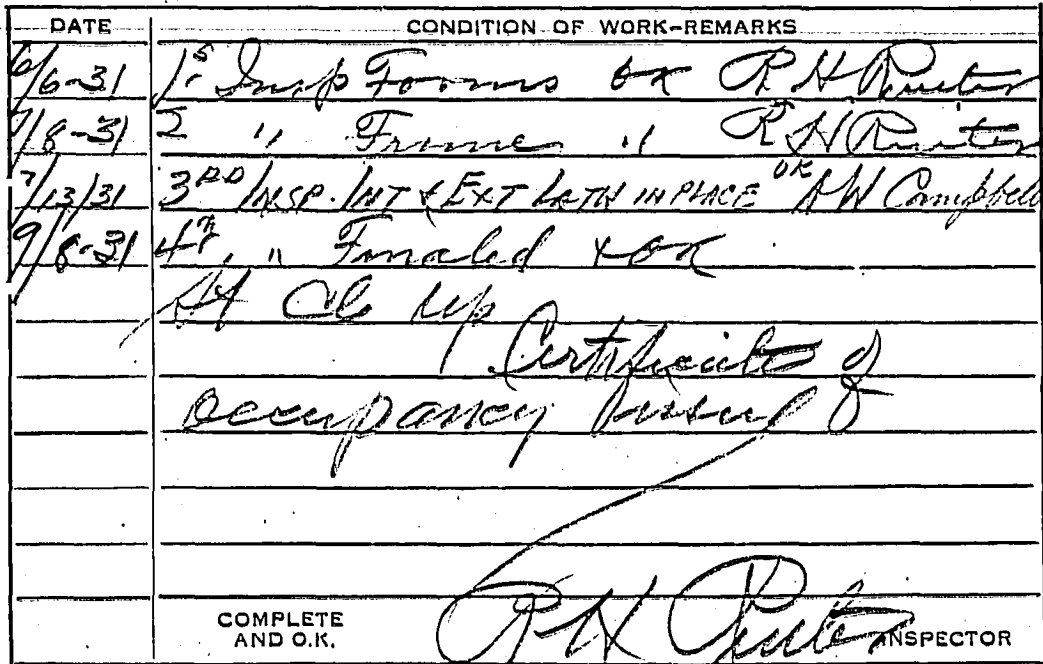 DATE CONDITION OF WORK-REMARKS
6/6-31 1st Insp Forms OK R H Ruiter
7/8-31 2 " Frame " R H Ruiter
7/13/31 3RD INSP. INT & EXT LATH IN PLACE OK A W Campbell
9/8-31 4th " Finaled & OK
Up
Certificate of
occupancy
COMPLETE
AND O.K. R H Ruiter INSPECTOR